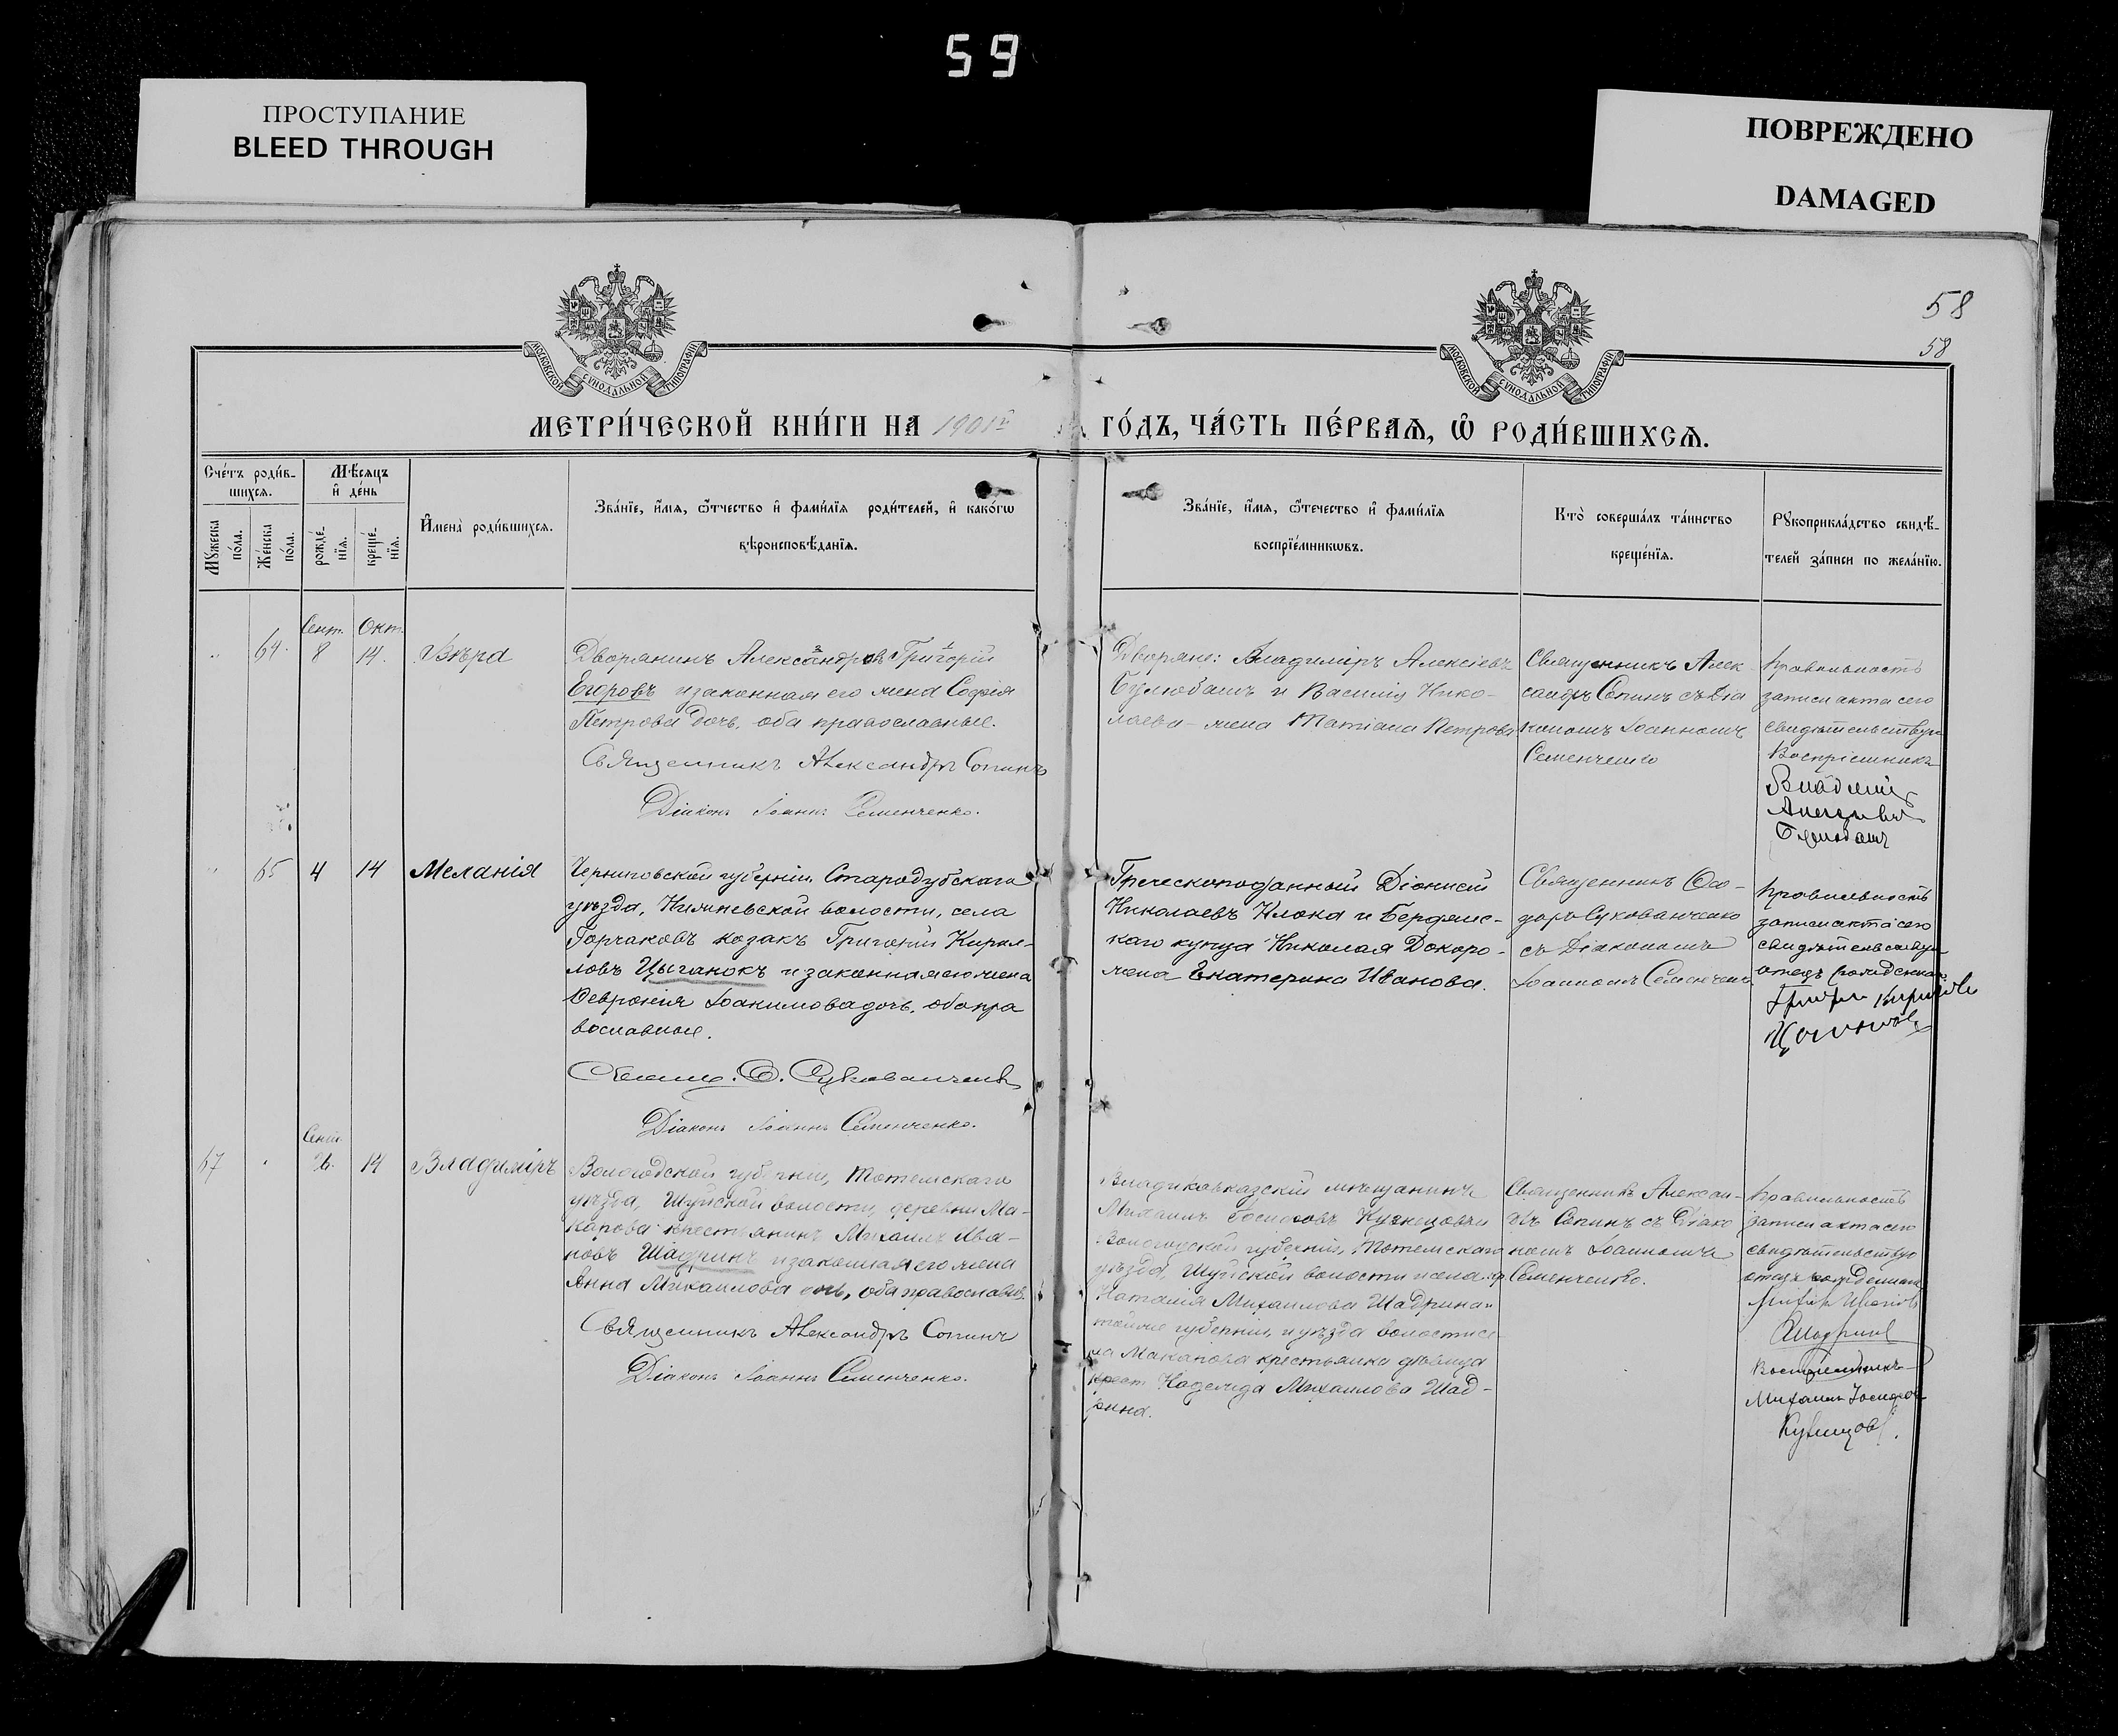 59
ПРОСТУПАНИЕ
BLEED THROUGH
ПОВРЕЖДЕНО
DAMAGED
58
58
МОСКОВСКОЙ СѴНОДАЛЬНОЙ ТИПОГРАФІИ
МОСКОВСКОЙ СѴНОДАЛЬНОЙ ТИПОГРАФІИ
МЕТРИ́ЧЕСКОЙ КНИ́ГИ НА 1901й ГО́ДЪ, ЧА́СТЬ ПЕ́РВАѦ, Ѽ РОДИ́ВШИХСѦ.
Сче́тъ роди́в-
шихся.
Мѣсяцъ
и҆ де́нь
Мꙋжеска
по́ла.
Же́нска
по́ла.
рожде́-
нїя.
креще́-
нїя.
И҆мена̀ роди́вшихся.
Зва́нїе, и҆́мя, ѻ҆́тчество и҆ фами́лїя роди́телей, и҆ како́гѡ
вѣроисповѣ́данїя.
Зва́нїе, и҆́мя, ѻ҆́течество и҆ фами́лїя
воспрїе́мникѡвъ.
Кто̀ соверша́лъ та́инство
креще́нїя.
Рꙋкоприкла́дство свидѣ́-
телей за́писи по жела́нїю.
Сент. Окт.
64. 8 14. Вѣра
Дворянинъ Александръ Григорій
Егоровъ и законная его жена Софія
Петрова дочь, оба православные.
Священникъ Александръ Сопинъ
Діаконъ Іоаннъ Семенченко.
Дворяне: Владиміръ Алексіевъ
Булюбашъ и Василія Нико-
лаева жена Татіана Петрова
Священникъ Алек
сандръ Сопинъ съ Діа
кономъ Іоанномъ
Семенченко
Правильность
записи акта сего
свидѣтельствую
Воспріемникъ
Владиміръ
Алексѣевъ
Булюбашъ
65 4 14 Меланія
Черниговской губерніи, Стародубскаго
уѣзда, волости, села
Горчаковъ козакъ Григорій Кирил-
ловъ Цыганокъ и законная его жена
Февронія Іоакимова дочь, оба пра
вославные.
Свящ. Ѳ. Сукованченко
Діаконъ Іоаннъ Семенченко.
Греческоподанный Діонисій
Николаевъ Клока и Бердянс-
каго купца Николая Докоро-
жена Екатерина Иванова.
Священникъ Ѳео-
доръ Сукованченко
съ Діакономъ
Іоанномъ Семенченко
Правильность
записи акта сего
свидѣтельствую
отецъ рожденной
Григорій Кириловъ
Цыганокъ
Сент.
67 26. 14 Владиміръ
Вологодской губерніи, Тотемскаго
уѣзда, Шуйской волости, деревни Ма-
карова крестьянинъ Михаилъ Ива-
новъ Шадринъ и законная его жена
Анна Михаилова дочь, оба православн.
Священникъ Александръ Сопинъ
Діаконъ Іоаннъ Семенченко.
Владикавказскій мѣщанинъ
Михаилъ Іосифовъ Кузнецовъ и
Вологодской губерніи, Тотемскаго
уѣзда, Шуйской волости
Наталія Михаилова Шадрина и
тойже губерніи, и уѣзда волости се-
ла Макарова крестьянка дѣвица
Надежда Михаилова Шад-
рина.
Священникъ Алексан-
дръ Сопинъ съ Діако
номъ Іоанномъ
Семенченко.
Правильность
записи акта сего
свидѣтельствую
отецъ рожденнаго
Михаилъ Ивановъ
Шадринъ
Воспріемникъ
Михаилъ Іосифовъ
Кузнецовъ.